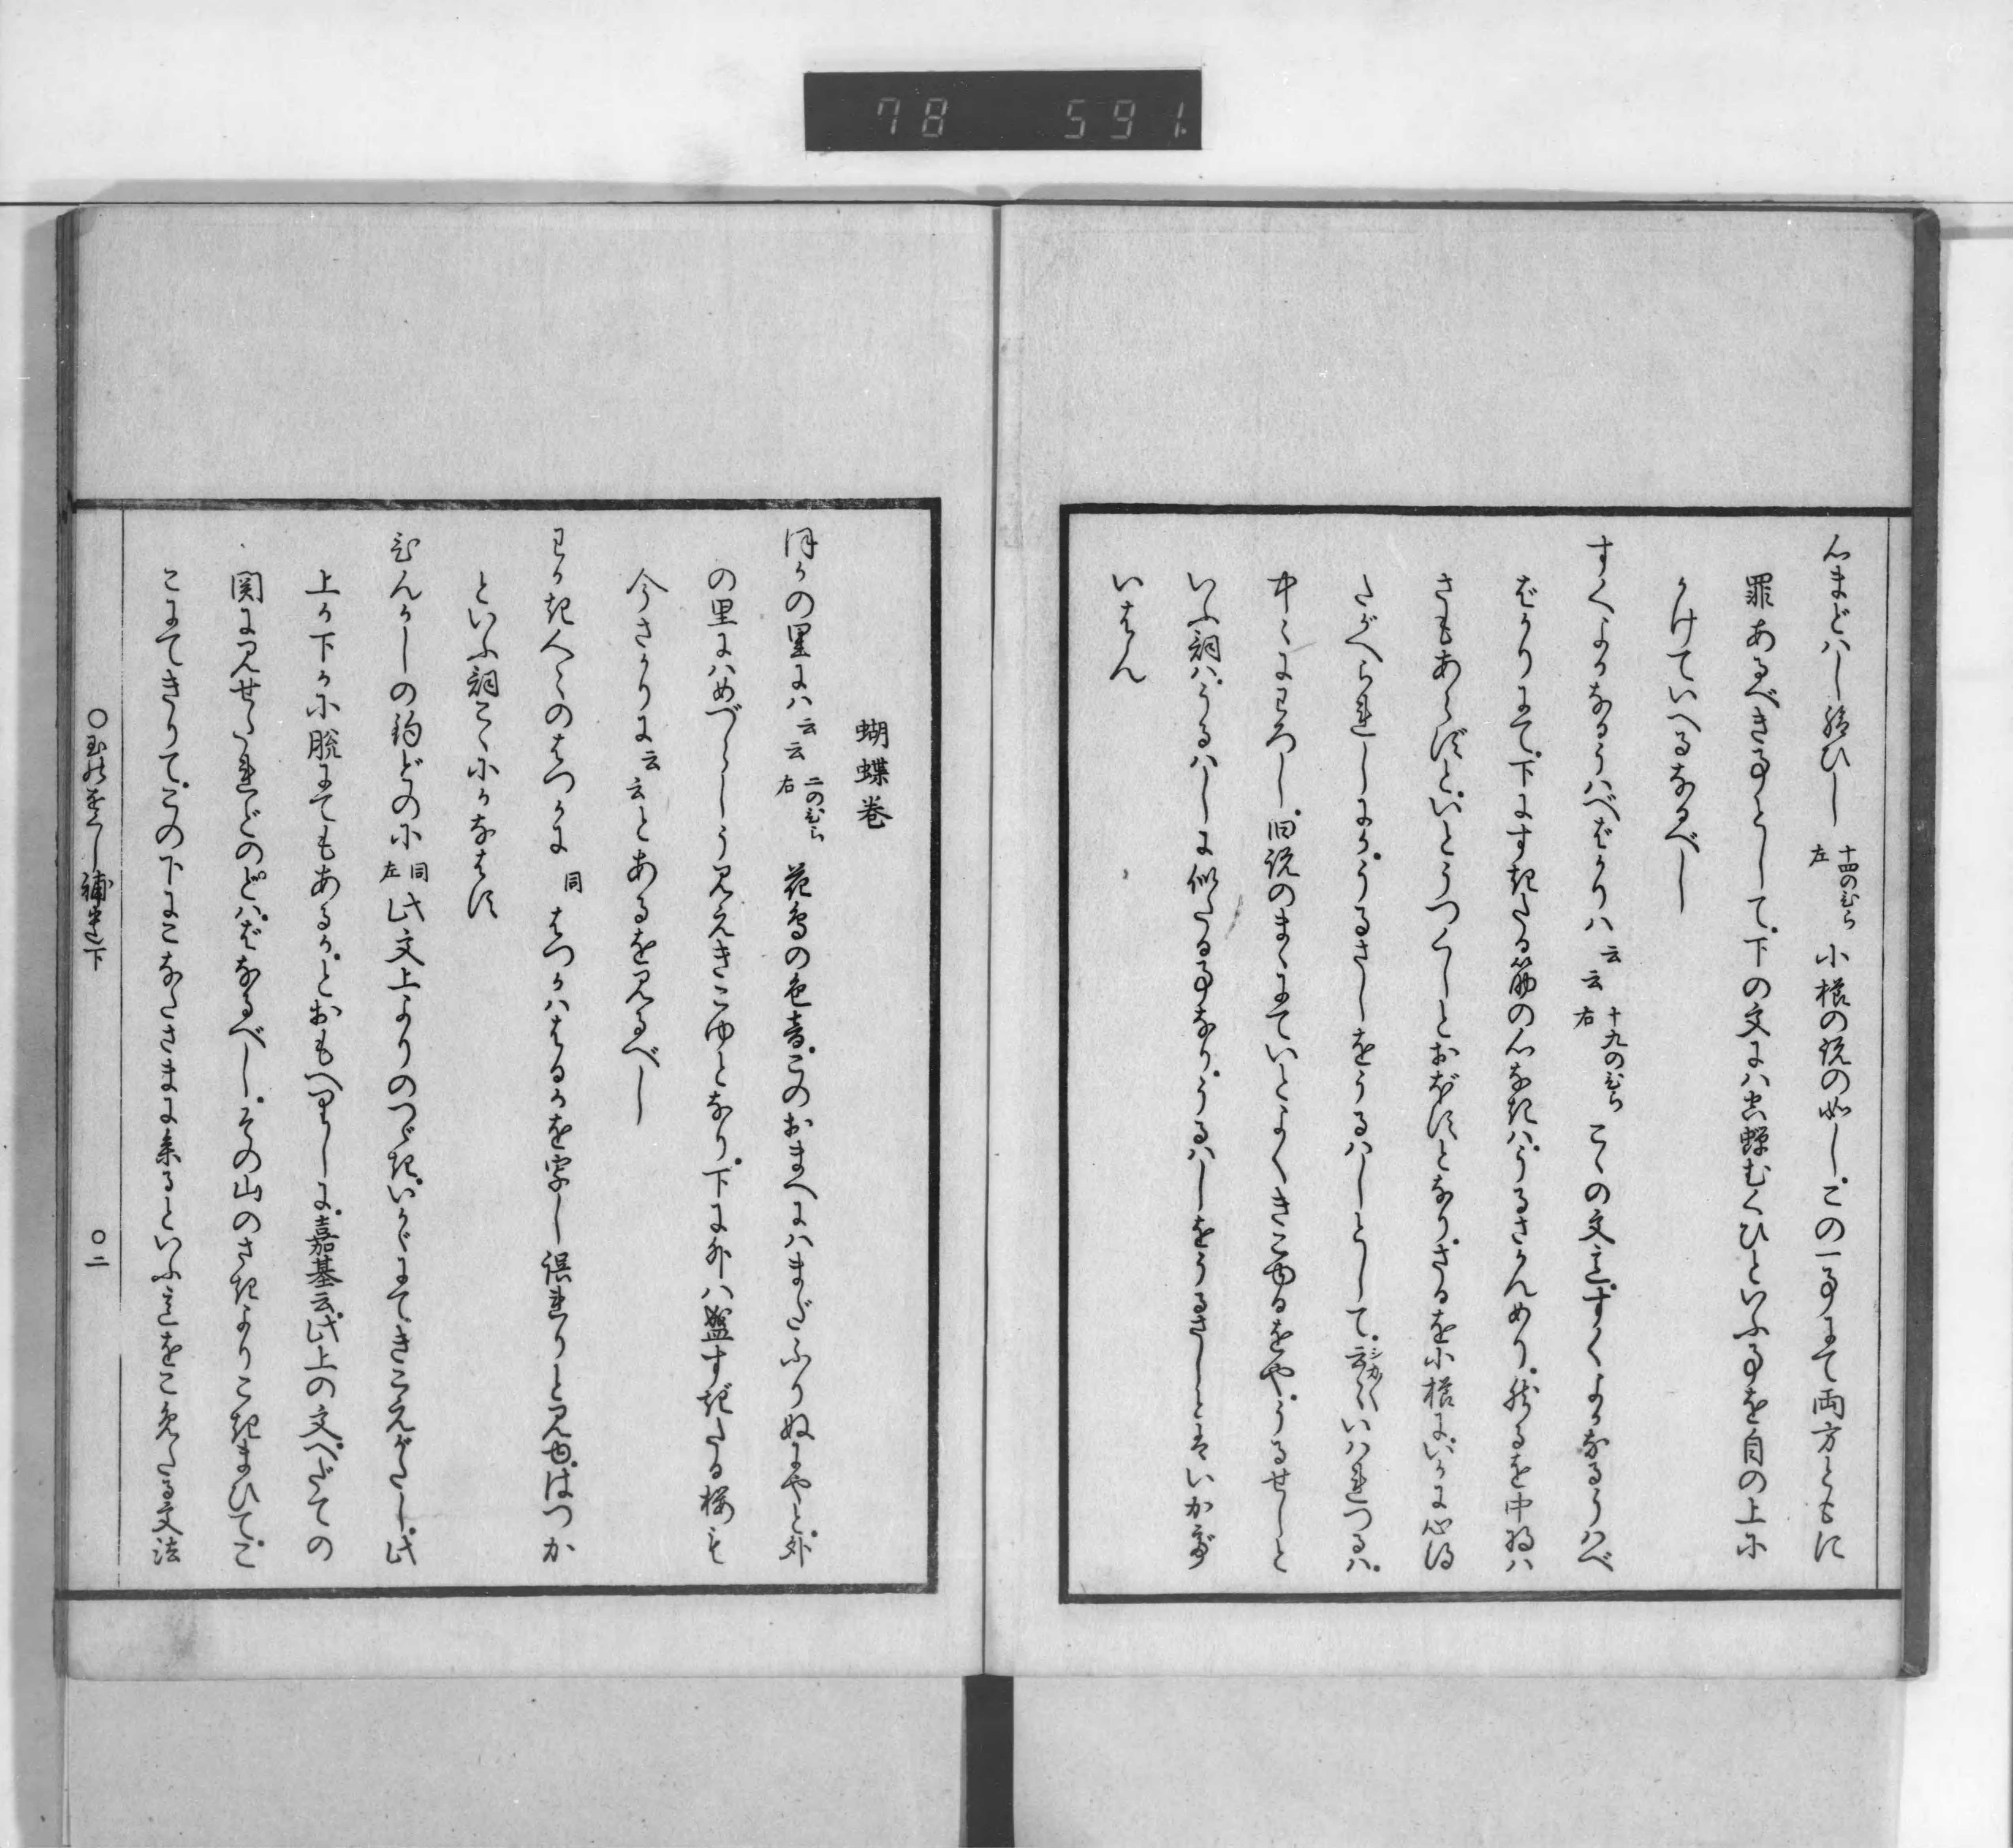 78 591
心まどはし給ひし 十四のひら左 小櫛の説の如し。この一事にて両方ともに
罪あるべき事として。下の文には空蝉むくひといふ事を自の上に
かけていへるなるべし
すくよかなるうはべばかりは云云 十九のひら右 こゝの文意。すくよかなるうはべ
ばかりにて。下にすきたる筋の心なきは。うるさかんめり。然るを中将は
さもあらずと。いとうつくしとおぼすとなり。さるを小櫛に。いかに心得
たがへられしにか。うるさしをうるはしとして。云々いはれつるは。
中々にわろし。旧説のまゝにていとよくきこゆるをや。うるせしと
いふ詞は。うるはしに似たる事なり。うるはしをうるさしとはいかゞ
いはん
蝴蝶巻
ほかの里には云云 二のひら右 花鳥の色音。このおまへにはまだふりぬにやと。外
の里にはめづらしう見えきこゆとなり。下に外は盛すぎたる桜も
今さかりに云云とあるを見るべし
わかき人々のはつかに 同 はつかははるかを字し誤れりと見ゆ。はつか
といふ詞こゝにかなはず
ひんがしの釣どのに 同左 此文上よりのつゞき。いかゞにて。きこえがたし。此
上か下かに脱にてもあるか。とおもへりしに。嘉基云。此上の文へだての
関に見せたれどのどは。ばなるべし。その山のさきよりこぎまひて。こ
こにてきりて。この下にこなたさまに来るといふ意をこめたる文法
○玉の小くし補遺下 ○二